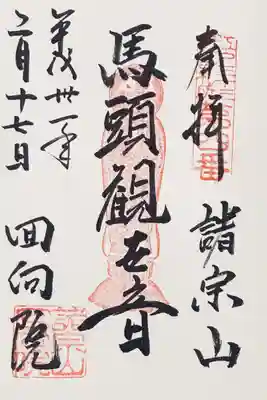 奉拝 諸宗山
馬頭観世音
回向院
平成卅一年
二月十七日